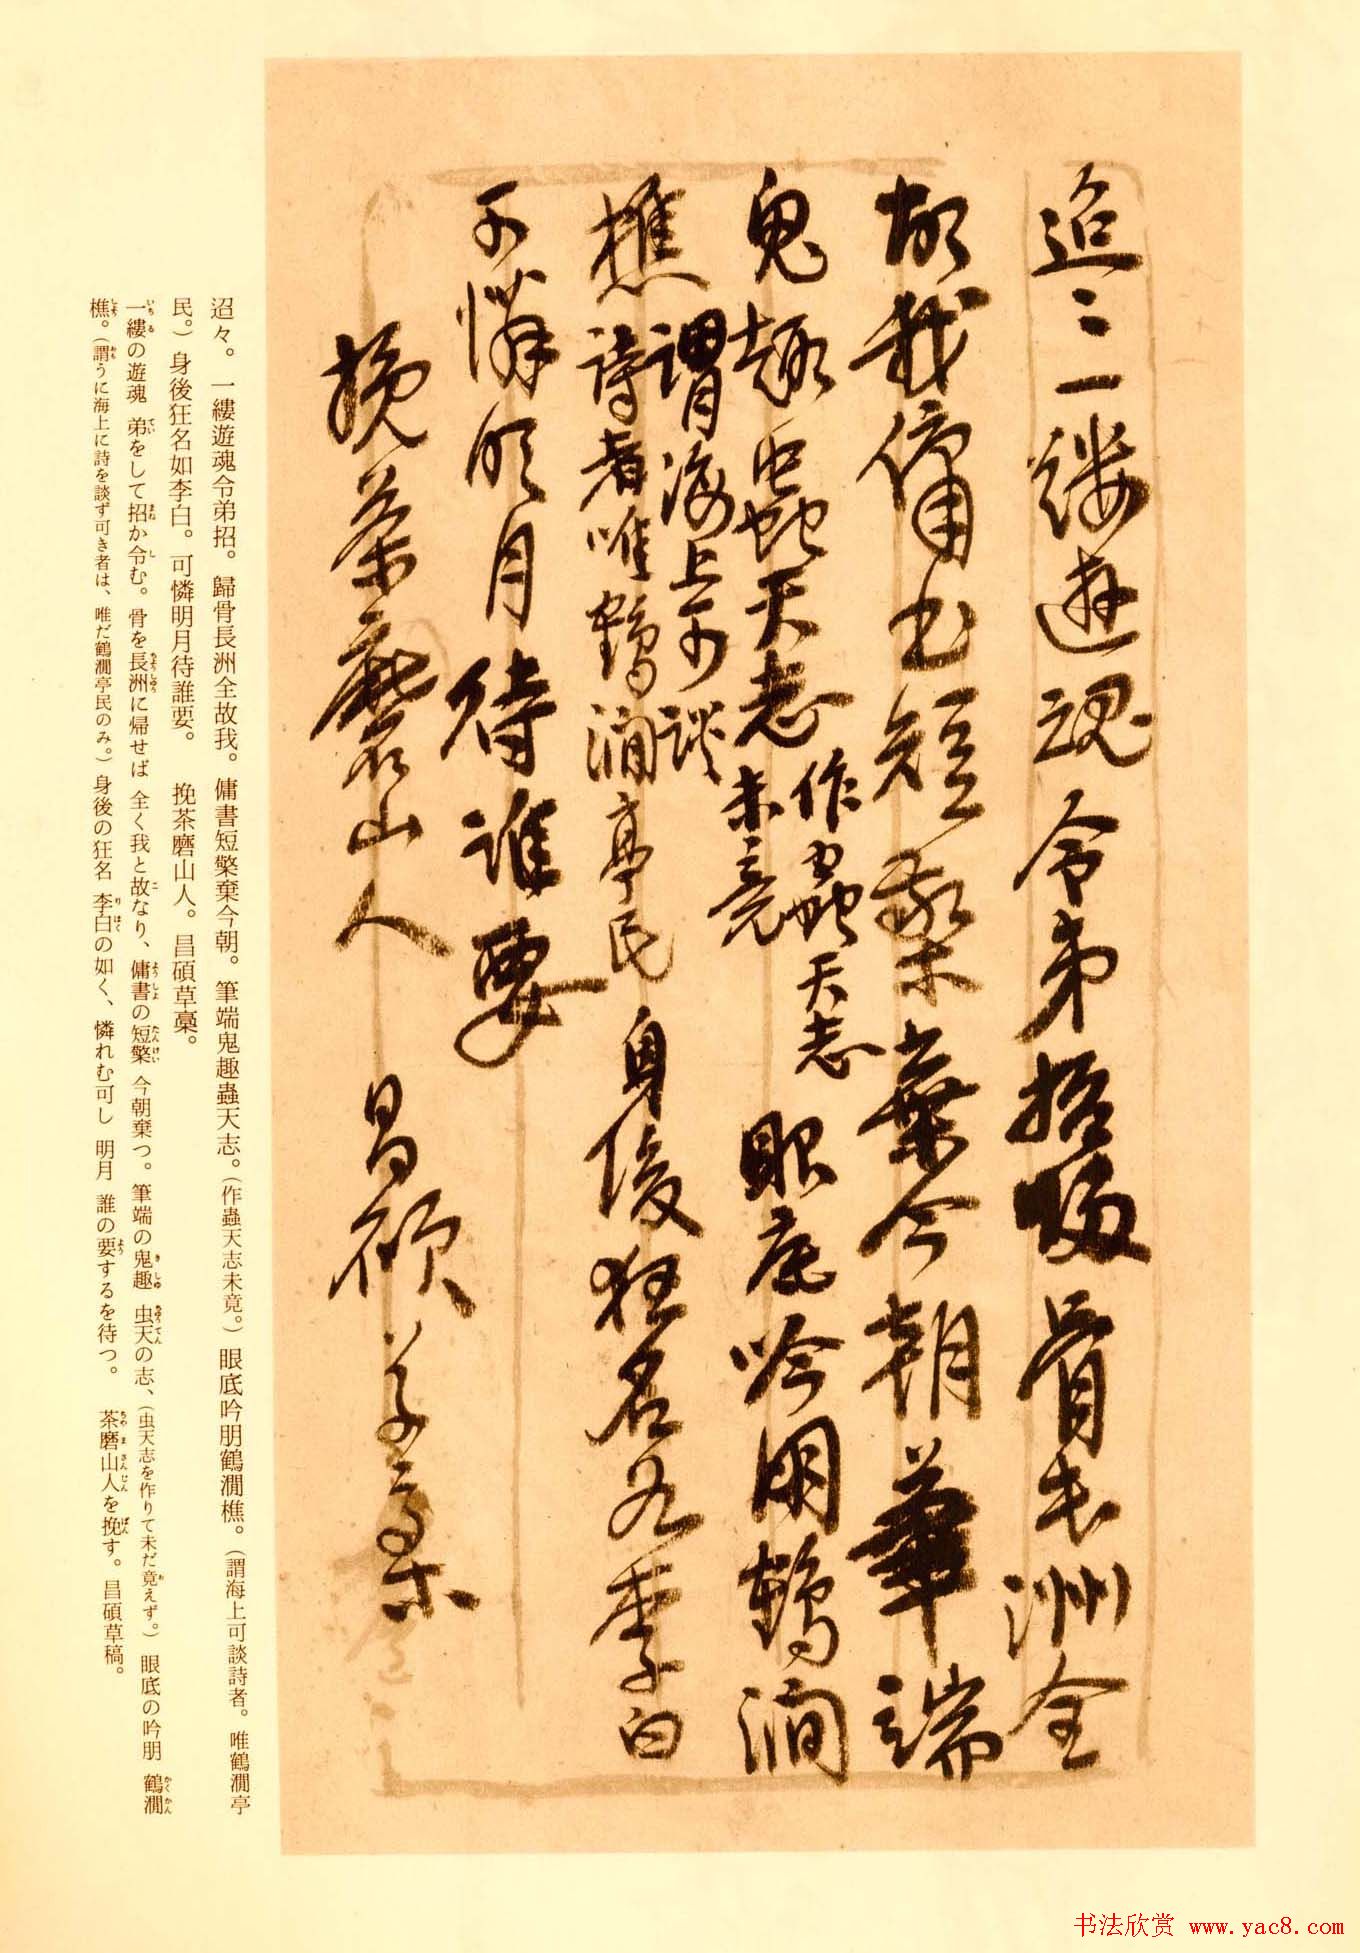 迢〻一縷遊魂令弟招歸骨長洲全
故我傭書短檠棄今朝筆端
鬼趣蟲天志
作蟲天志
未竟
眼底吟朋鶴澗
樵
謂海上可談
詩者唯鶴澗亭民
身後狂名如李白
可憐明月待誰要
挽茶磨山人 昌碩草稾
迢々。一縷遊魂令弟招。歸骨長洲全故我。傭書短檠棄今朝。筆端鬼趣蟲天志。(作蟲天志未竟。)眼底吟朋鶴澗樵。(謂海上可談詩者。唯鶴澗亭
民。)身後狂名如李白。可憐明月待誰要。 挽茶磨山人。昌碩草稾。
一縷の遊魂 弟をして招か令む。骨を長洲に帰せば 全く我と故なり、傭書の短檠 今朝棄つ。筆端の鬼趣 虫天の志、(虫天志を作りて未だ竟えず。)眼底の吟朋 鶴澗
樵。(謂うに海上に詩を談ず可き者は、唯だ鶴澗亭民のみ。)身後の狂名 李白の如く、憐れむ可し 明月 誰の要するを待つ。 茶磨山人を挽す。昌碩草稿。
书法欣赏 www.yac8.com